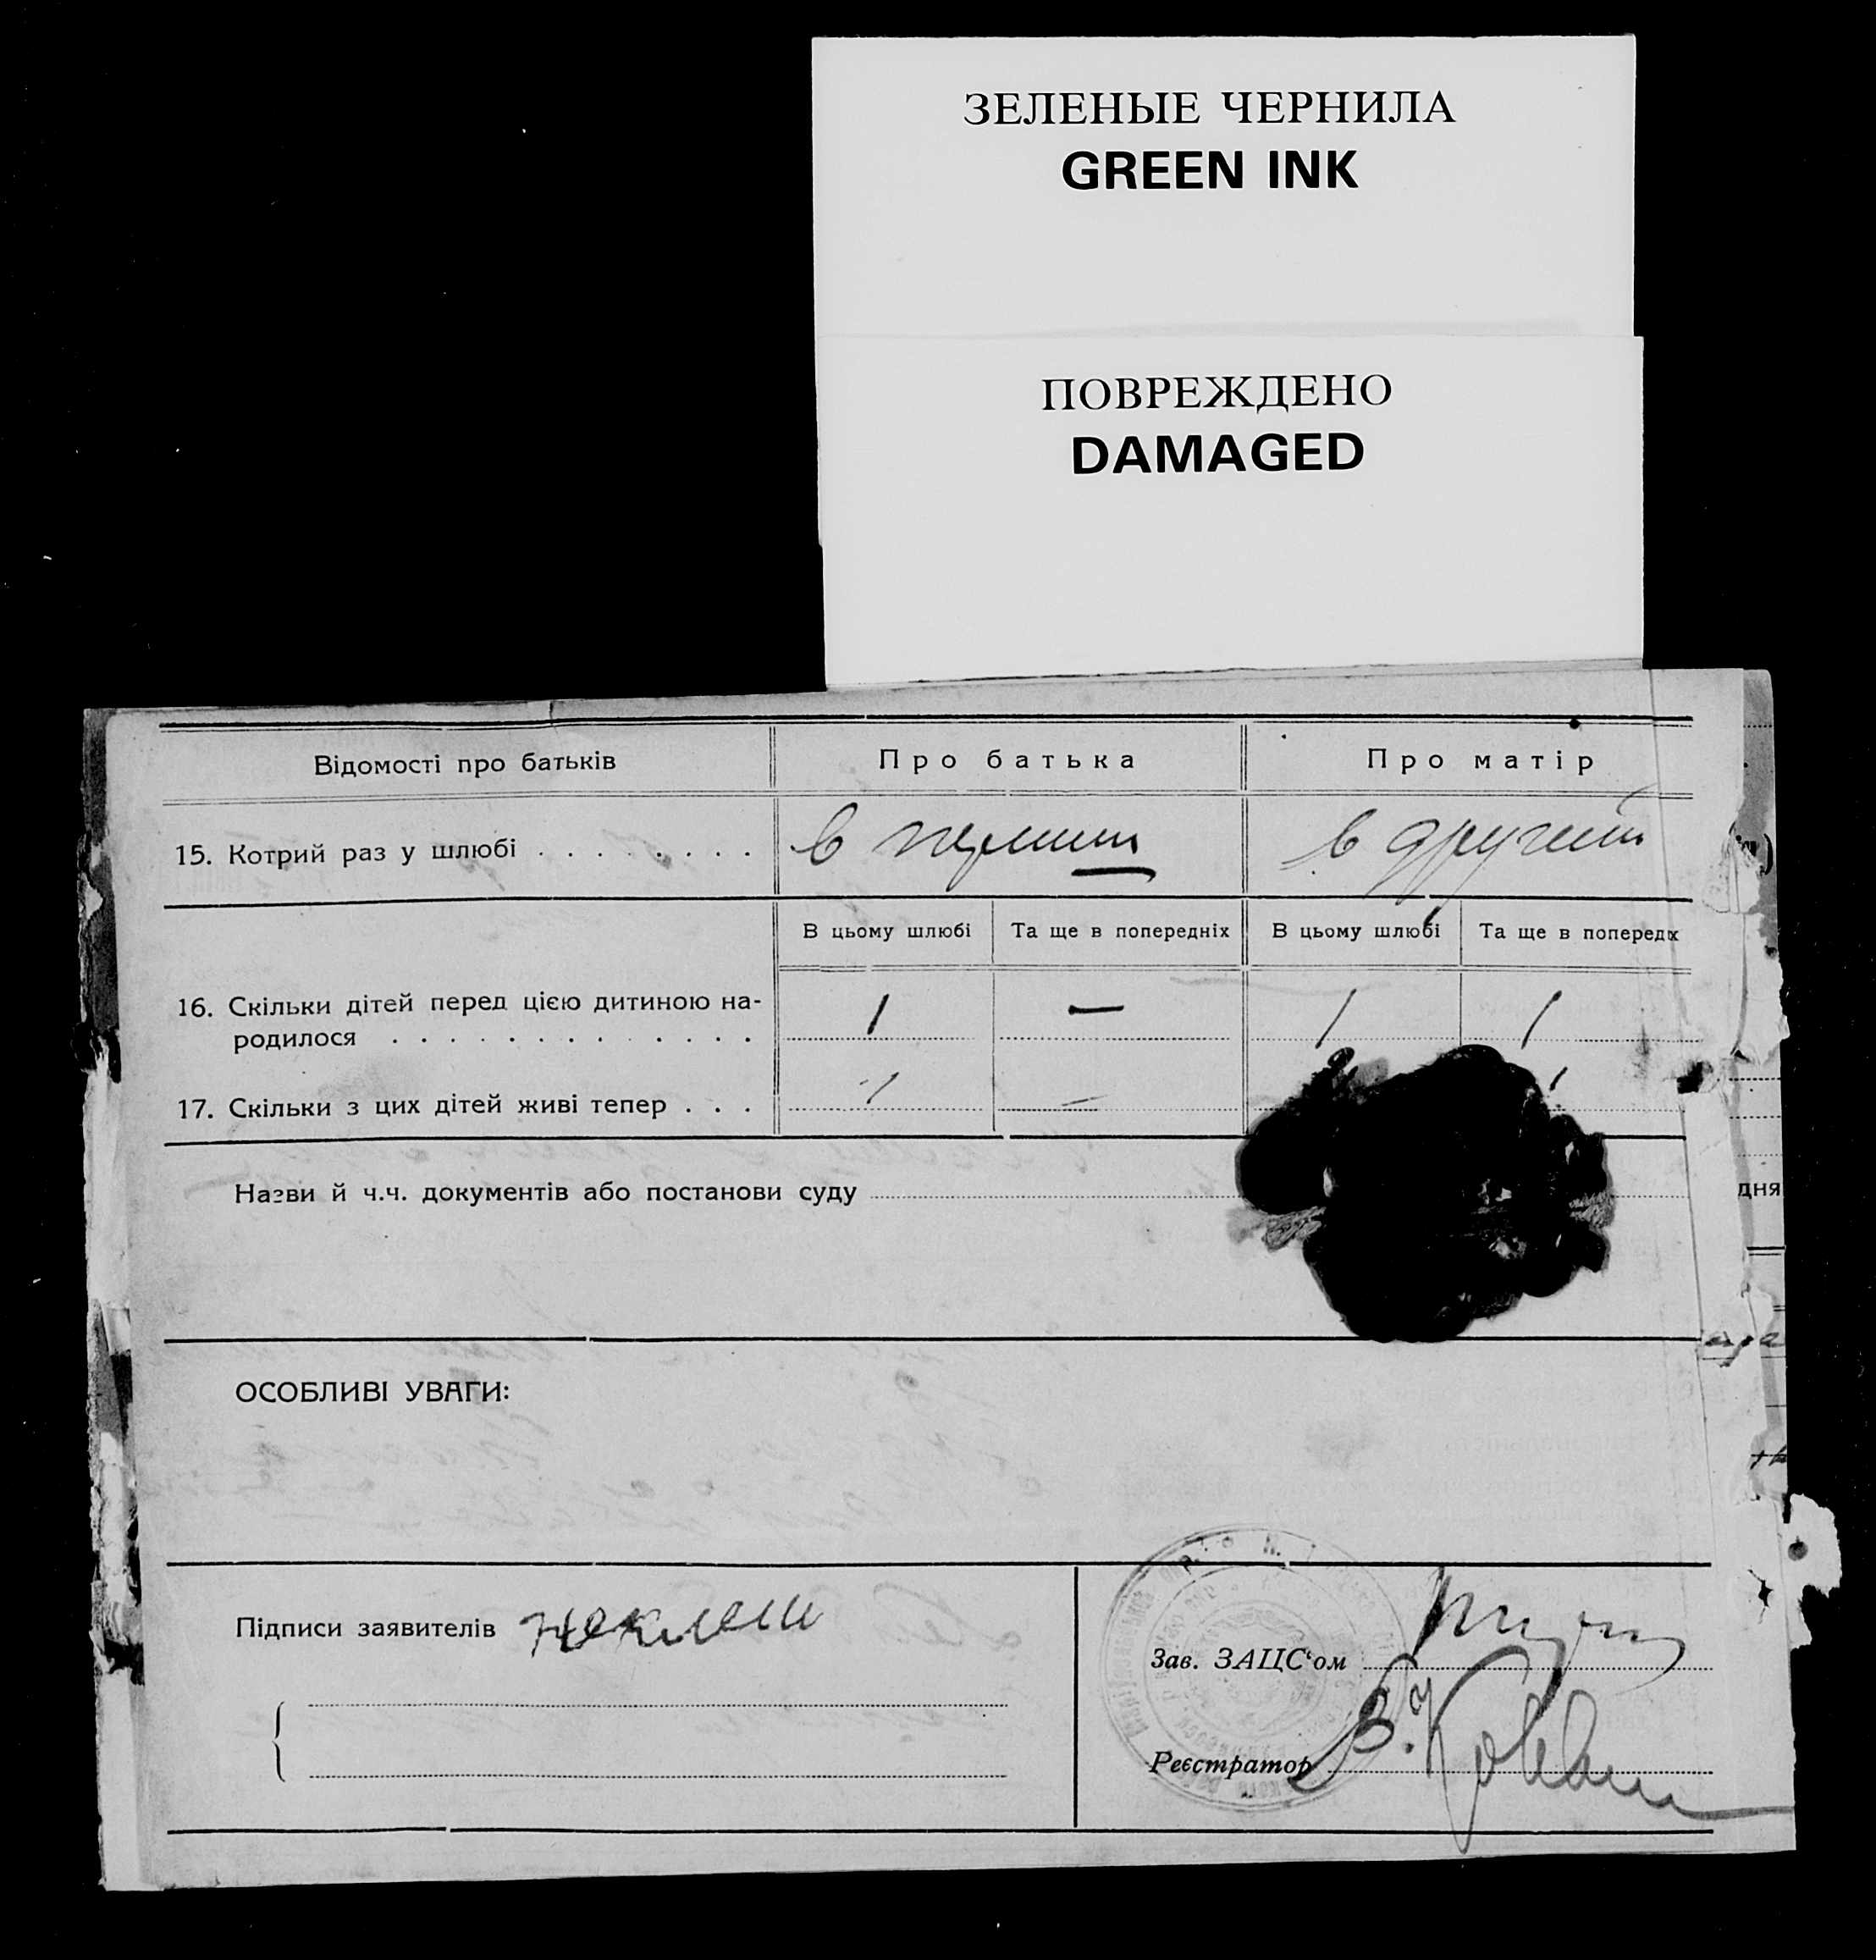 ЗЕЛЕНЫЕ ЧЕРНИЛА
GREEN INK
ПОВРЕЖДЕНО
DAMAGED
Відомості про батьків Про батька Про матір
15. Котрий раз у шлюбі . . . . . . . . в перший в другий
В цьому шлюбі Та ще в попередніх В цьому шлюбі Та ще в попередх
16. Скільки дітей перед цією дитиною на-
родилося . . . . . . . . . . . . . 1 — 1 1
17. Скільки з цих дітей живі тепер . . . 1 — 1
Назви й ч.ч. документів або постанови суду
дня
ОСОБЛИВІ УВАГИ:
Підписи заявителів
Зав. ЗАЦС‘ом
Реєстратор В.